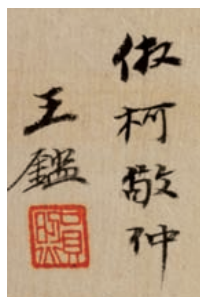 倣柯敬仲
王鑑